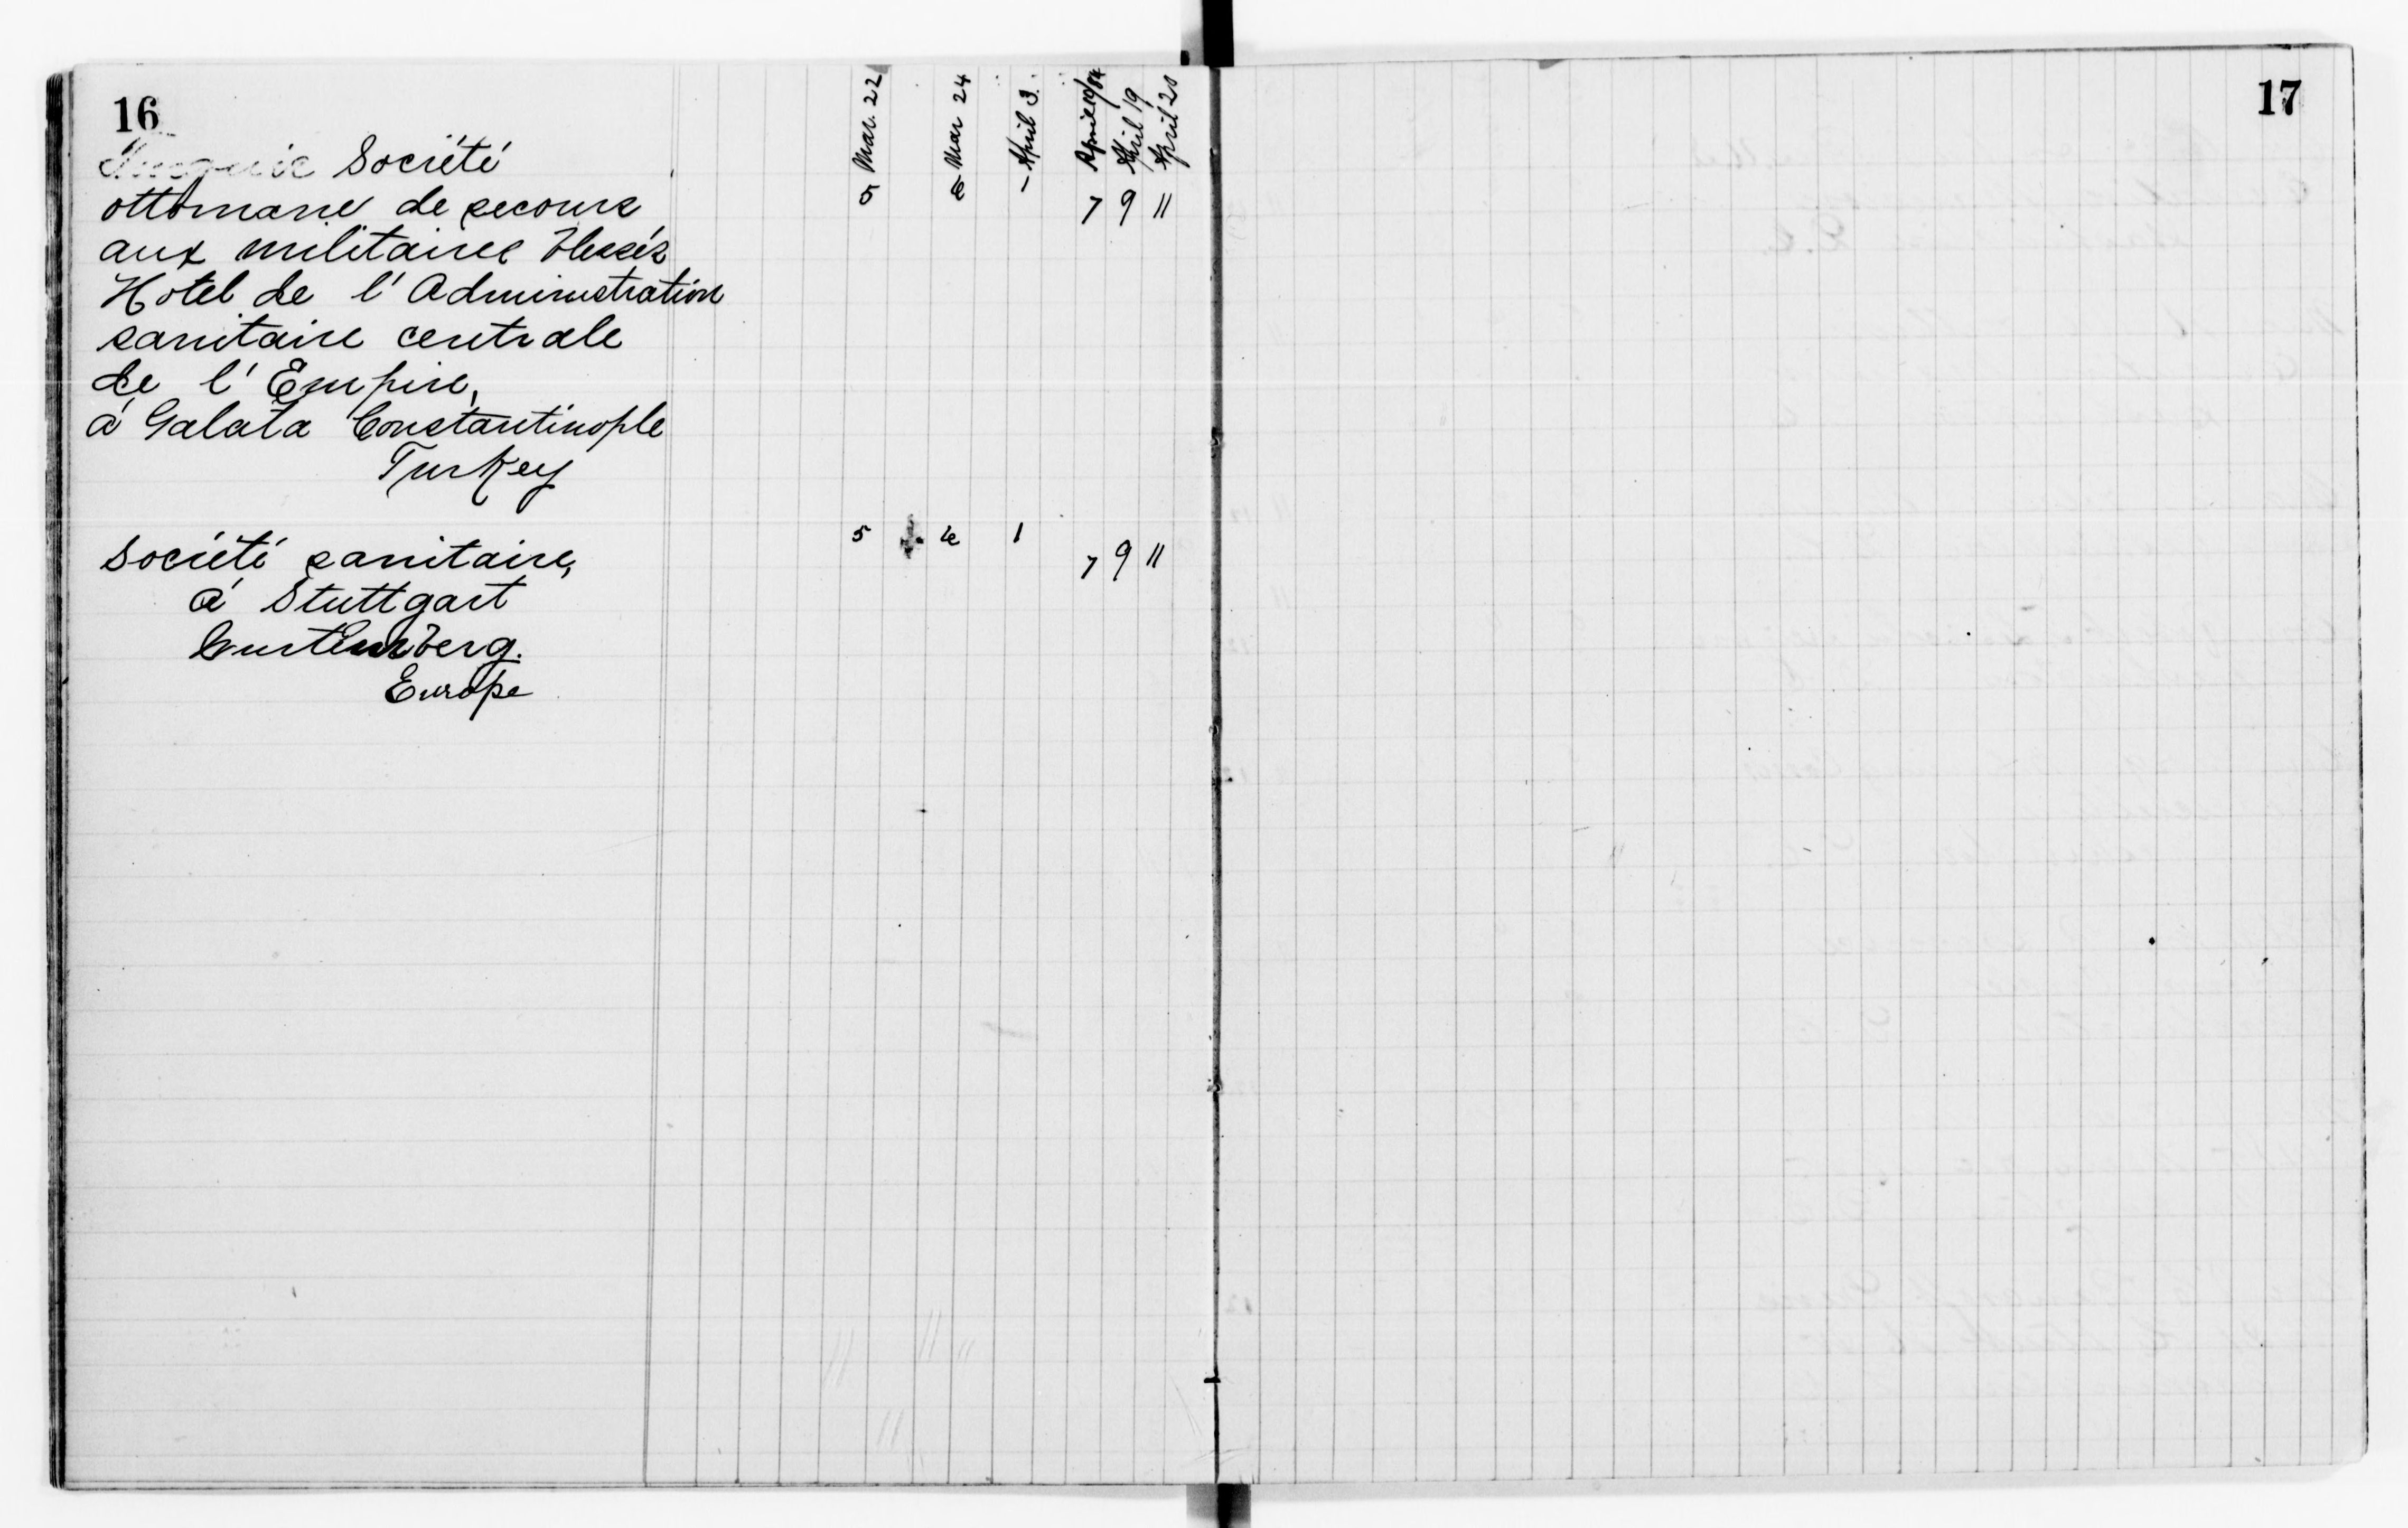 16
Société
ottomane de secours
aux militaires blessés
Hotel de l' Administration
sanitaire centrale
de l' Empire,
á Galata Constantinople
Turkey
Société sanitaire,
á Stuttgart
Wurtemberg.
Europe
5 Mar. 22
6 Mar 24
1 April 3.
7 April 10/84
9 April 19
11 April 20
5 6 1 7 9 11
17